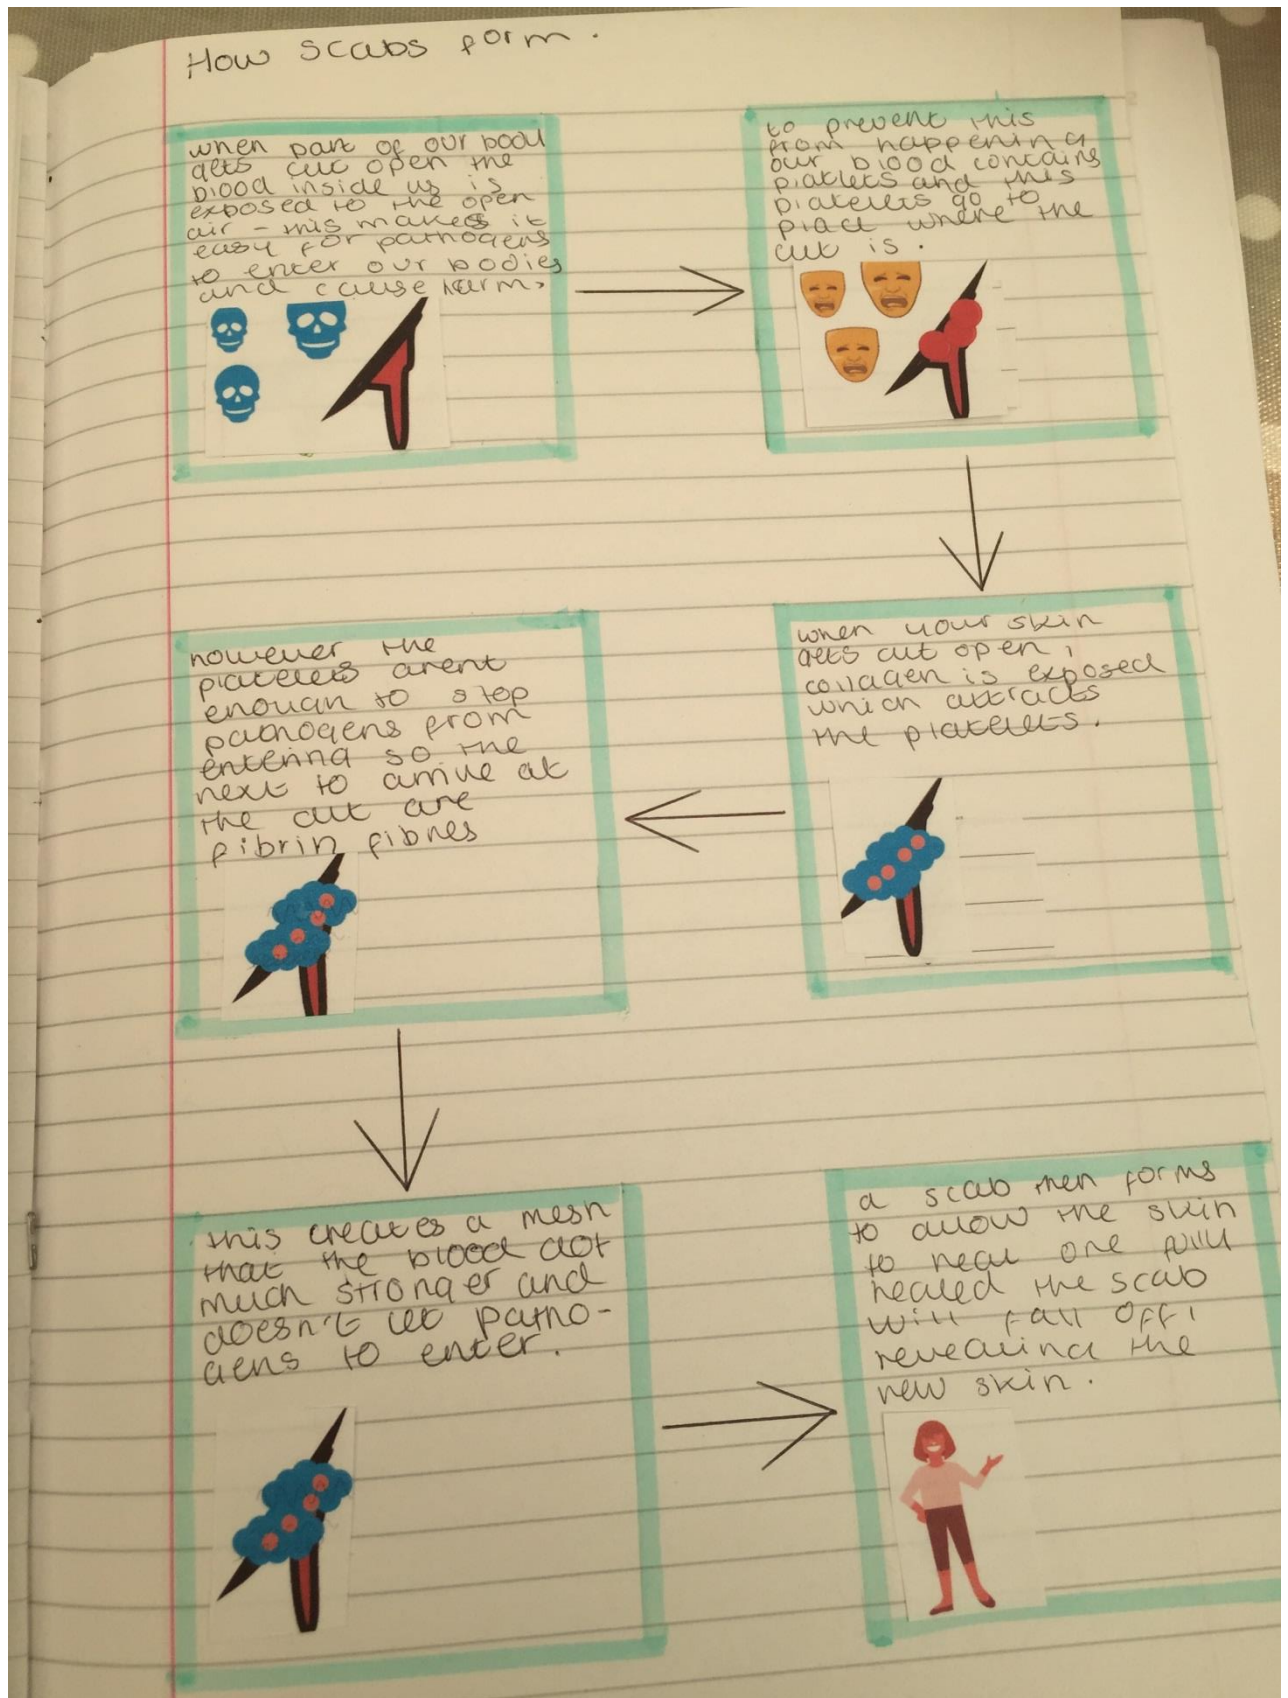 How scabs form.
when part of our bodu
gets cut open the
blood inside us is
exposed to the open
air - this makes it
easy for pathogens
to enter our bodies
and cause harm.
to prevent this
from happening
our blood contains
platlets and this
platelets go to
place where the
cut is.
when your skin
gets cut open,
collagen is exposed
which attracts
the platelets.
however the
platelets arent
enough to stop
pathogens from
entering so the
next to arrive at
the cut are
fibrin fibres
this creates a mesh
that the blood clot
much stronger and
doesn't let patho-
gens to enter.
a scab then forms
to allow the skin
to heal one fully
healed the scab
will fall off,
revealing the
new skin.